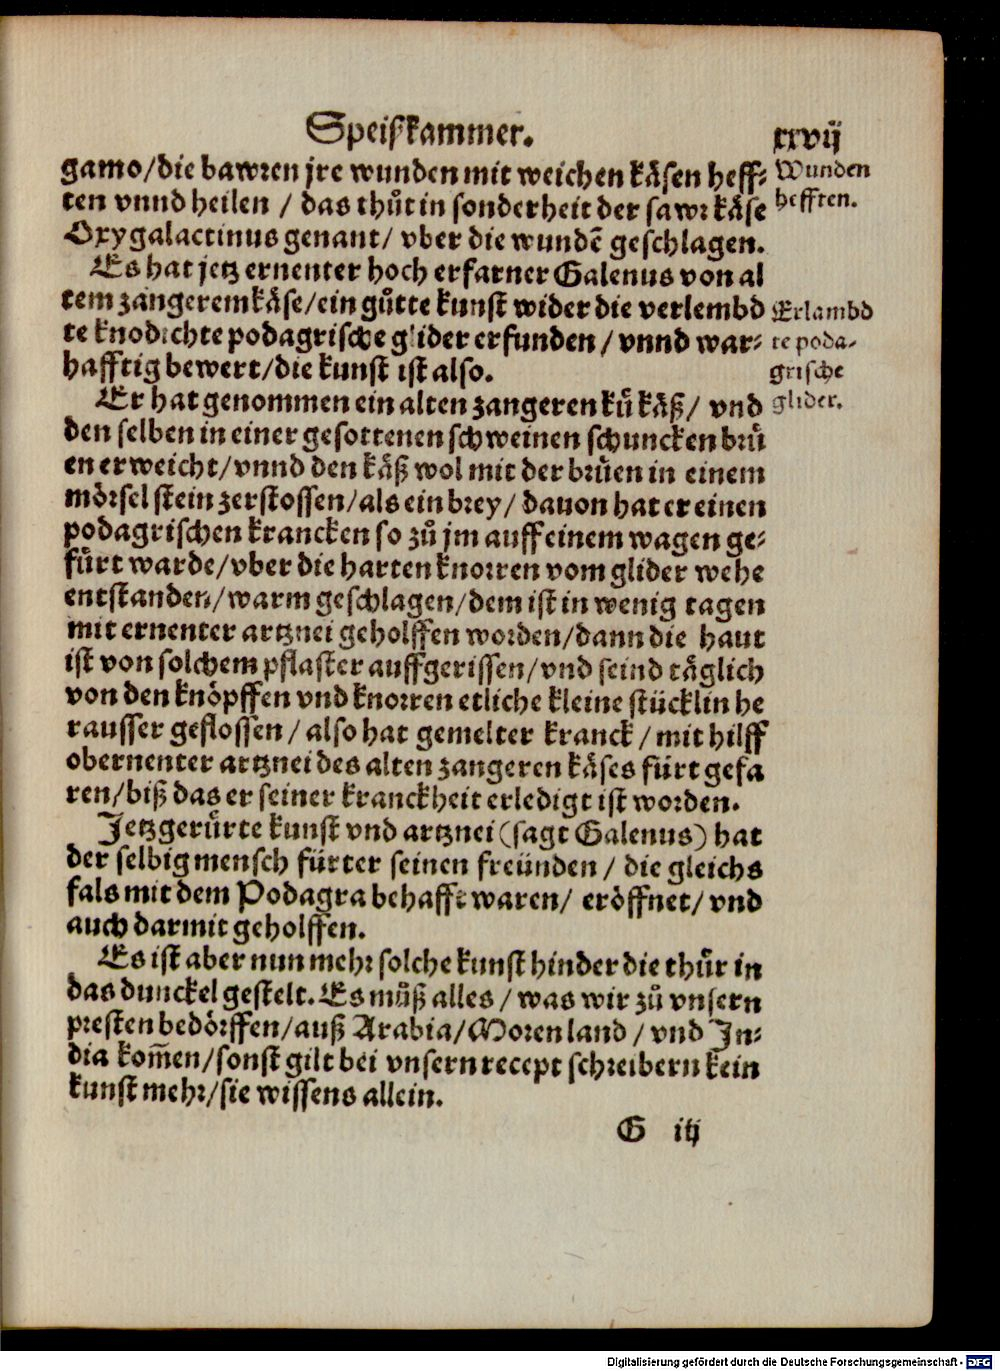 Speiſzkammer. xxvij
gamo/die bawren jre wunden mit weichen käſen heff⸗
ten vnnd heilen / das thůt in ſonderheit der ſawr käſe
Oxygalactinus genant/ vber die wundē geſchlagen.
Wunden
hefften.
Es hat jetz ernenter hoch erfarner Galenus von al
tem zangerem käſe/ein gůtte kunſt wider die verlembd
te knodichte podagriſche glider erfunden / vnnd war⸗
hafftig bewert/die kunſt iſt alſo.
Erlambd
te poda⸗
griſche
glider.
Er hat genommen ein alten zangeren ků käß/ vnd
den ſelben in einer geſottenen ſchweinen ſchuncken brů
en erweicht/vnnd den käß wol mit der brůen in einem
mörſel ſtein zerſtoſſen/als ein brey/ dauon hat er einen
podagriſchen krancken ſo zů jm auff einem wagen ge⸗
fůrt warde/vber die harten knorren vom glider wehe
entſtanden/warm geſchlagen/dem iſt in wenig tagen
mit ernenter artznei geholffen worden/dann die haut
iſt von ſolchem pflaſter auffgeriſſen/vnd ſeind täglich
von den knöpffen vnd knorren etliche kleine ſtücklin he
rauſſer gefloſſen / alſo hat gemelter kranck / mit hilff
obernenter artznei des alten zangeren käſes fürt gefa
ren/biß das er ſeiner kranckheit erledigt iſt worden.
Jetzgerůrte kunſt vnd artznei (ſagt Galenus) hat
der ſelbig menſch fürter ſeinen freünden / die gleichs
fals mit dem Podagra behafft waren/ eröffnet/ vnd
auch darmit geholffen.
Es iſt aber nun mehr ſolche kunſt hinder die thůr in
das dunckel geſtelt. Es můß alles / was wir zů vnſern
preſten bedörffen/auß Arabia/Morenland / vnd In⸗
dia kom̄en/ſonſt gilt bei vnſern recept ſchreibern kein
kunſt mehr/ſie wiſſens allein.
G iij
Digitalisierung gefördert durch die Deutsche Forschungsgemeinschaft - DFG